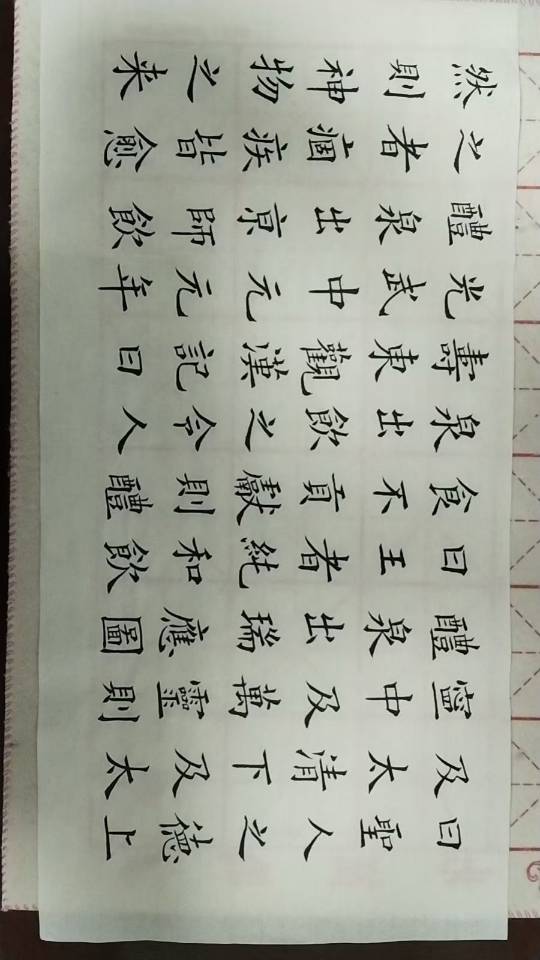 曰聖人之德上
及太清下及太
寧中及萬靈則
醴泉出瑞應圖
曰王者純和飲
食不貢獻則醴
泉出飲之令人
壽東觀漢記曰
光武中元元年
醴泉出京師飲
之者痼疾皆愈
然則神物之来